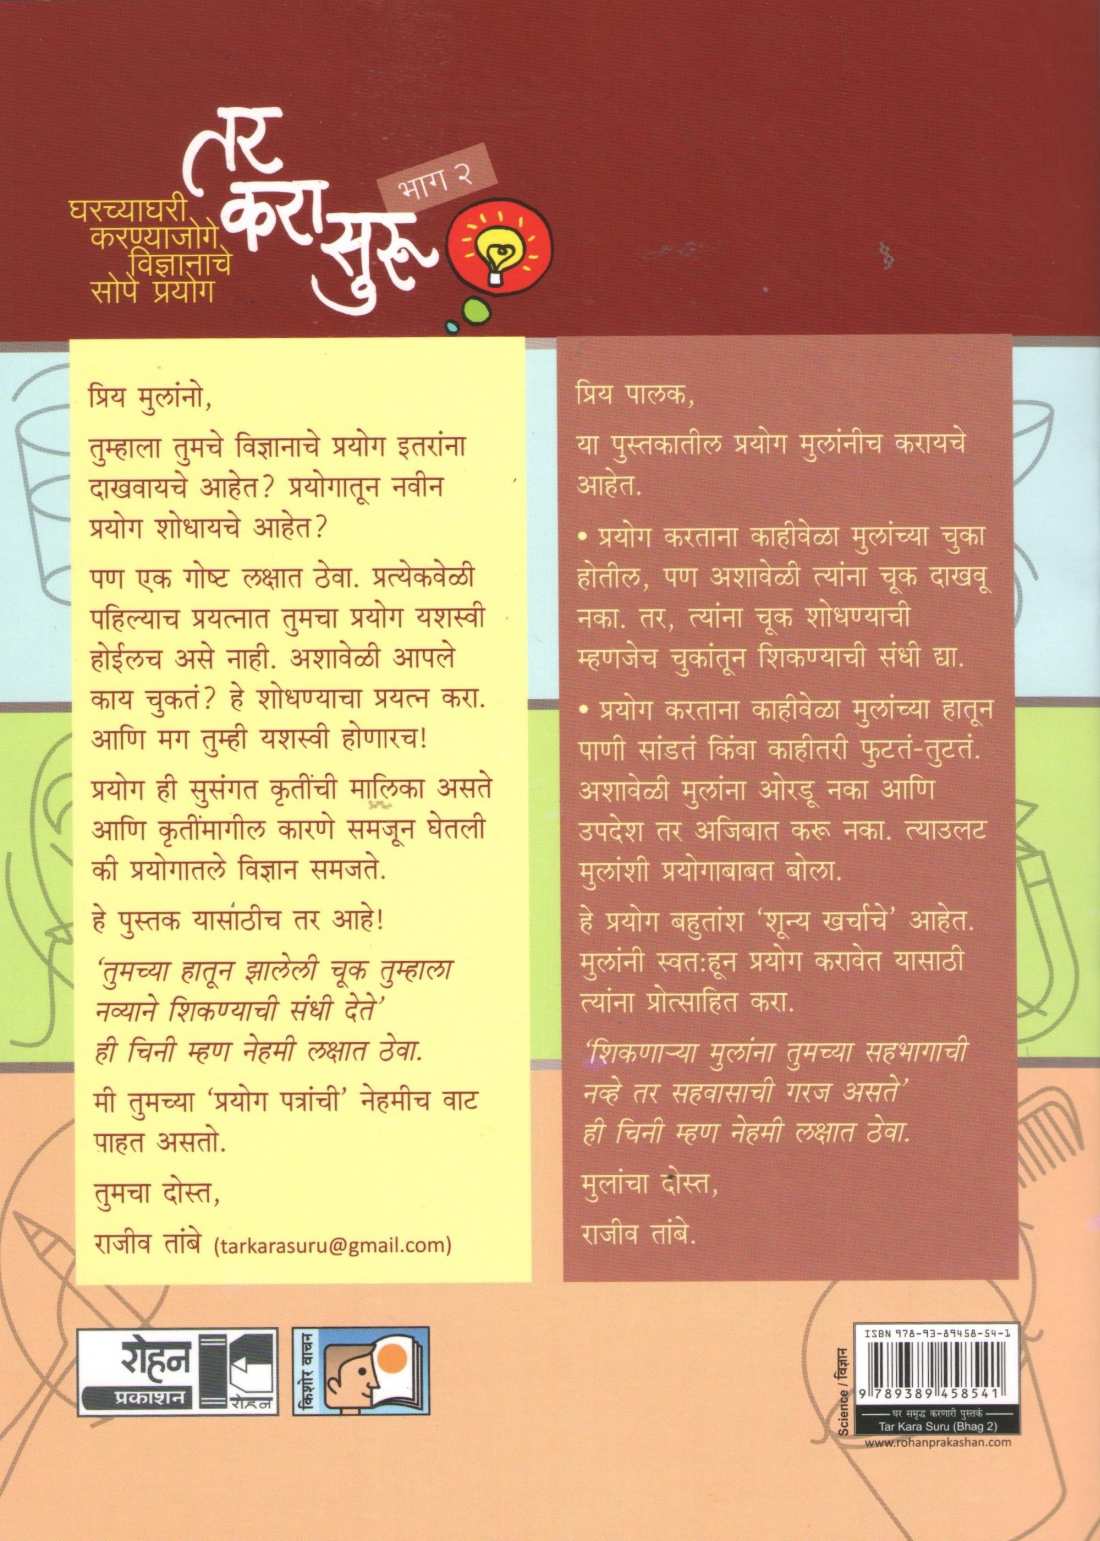 तर
करा
सुरू
भाग २
घरच्याघरी
करण्याजोगे
विज्ञानाचे
सोपे प्रयोग
प्रिय मुलांनो,
तुम्हाला तुमचे विज्ञानाचे प्रयोग इतरांना
दाखवायचे आहेत? प्रयोगातून नवीन
प्रयोग शोधायचे आहेत?
पण एक गोष्ट लक्षात ठेवा. प्रत्येकवेळी
पहिल्याच प्रयत्नात तुमचा प्रयोग यशस्वी
होईलच असे नाही. अशावेळी आपले
काय चुकतं? हे शोधण्याचा प्रयत्न करा.
आणि मग तुम्ही यशस्वी होणारच!
प्रयोग ही सुसंगत कृतींची मालिका असते
आणि कृतींमागील कारणे समजून घेतली
की प्रयोगातले विज्ञान समजते.
हे पुस्तक यासाठीच तर आहे!
‘तुमच्या हातून झालेली चूक तुम्हाला
नव्याने शिकण्याची संधी देते’
ही चिनी म्हण नेहमी लक्षात ठेवा.
मी तुमच्या ‘प्रयोग पत्रांची’ नेहमीच वाट
पाहत असतो.
तुमचा दोस्त,
राजीव तांबे (tarkarasuru@gmail.com)
प्रिय पालक,
या पुस्तकातील प्रयोग मुलांनीच करायचे
आहेत.
• प्रयोग करताना काहीवेळा मुलांच्या चुका
होतील, पण अशावेळी त्यांना चूक दाखवू
नका. तर, त्यांना चूक शोधण्याची
म्हणजेच चुकांतून शिकण्याची संधी द्या.
• प्रयोग करताना काहीवेळा मुलांच्या हातून
पाणी सांडतं किंवा काहीतरी फुटतं-तुटतं.
अशावेळी मुलांना ओरडू नका आणि
उपदेश तर अजिबात करू नका. त्याउलट
मुलांशी प्रयोगाबाबत बोला.
हे प्रयोग बहुतांश ‘शून्य खर्चाचे’ आहेत.
मुलांनी स्वत:हून प्रयोग करावेत यासाठी
त्यांना प्रोत्साहित करा.
‘शिकणाऱ्या मुलांना तुमच्या सहभागाची
नव्हे तर सहवासाची गरज असते’
ही चिनी म्हण नेहमी लक्षात ठेवा.
मुलांचा दोस्त,
राजीव तांबे.
रोहन
प्रकाशन
रोहन
किशोर वाचन
Science / विज्ञान
ISBN 978-93-89458-54-1
9 789389 458541
घर समृद्ध करणारी पुस्तकं
Tar Kara Suru (Bhag 2)
www.rohanprakashan.com